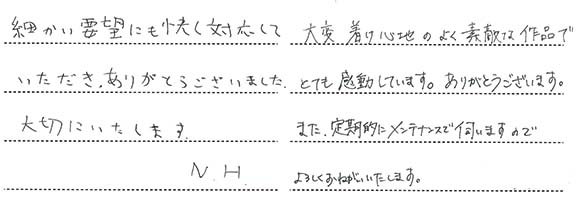 細かい要望にも快く対応して
いただき、ありがとうございました。
大切にいたします。
N.H.
大変着け心地のよく素敵な作品で
とても感動しています。ありがとうございます。
また、定期的にメンテナンスで伺いますので
よろしくおねがいいたします。